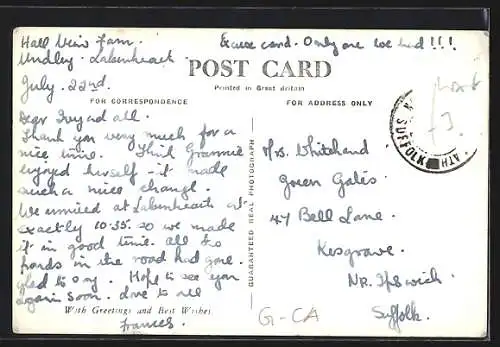 Hall View Farm.
Undley. Lakenheath
July. 22nd.
Excuse card. Only one we had!!!
POST CARD
Printed in Great Britain
FOR CORRESPONDENCE
FOR ADDRESS ONLY
Dear Ivy and all.
Thank you very much for a
nice time. Think Grannie
enjoyed herself - it made
such a nice change.
We arrived at Lakenheath at
exactly 10.35. so we made
it in good time. All the
floods in the road had gone.
glad to say. Hope to see you
again soon. Love to all
Frances.
With Greetings and Best Wishes
GUARANTEED REAL PHOTOGRAPH
Mrs Whitehand
Green Gates.
47 Bell Lane.
Kesgrave.
Nr. Ipswich.
Suffolk.
G-CA
ATH
SUFFOLK
3